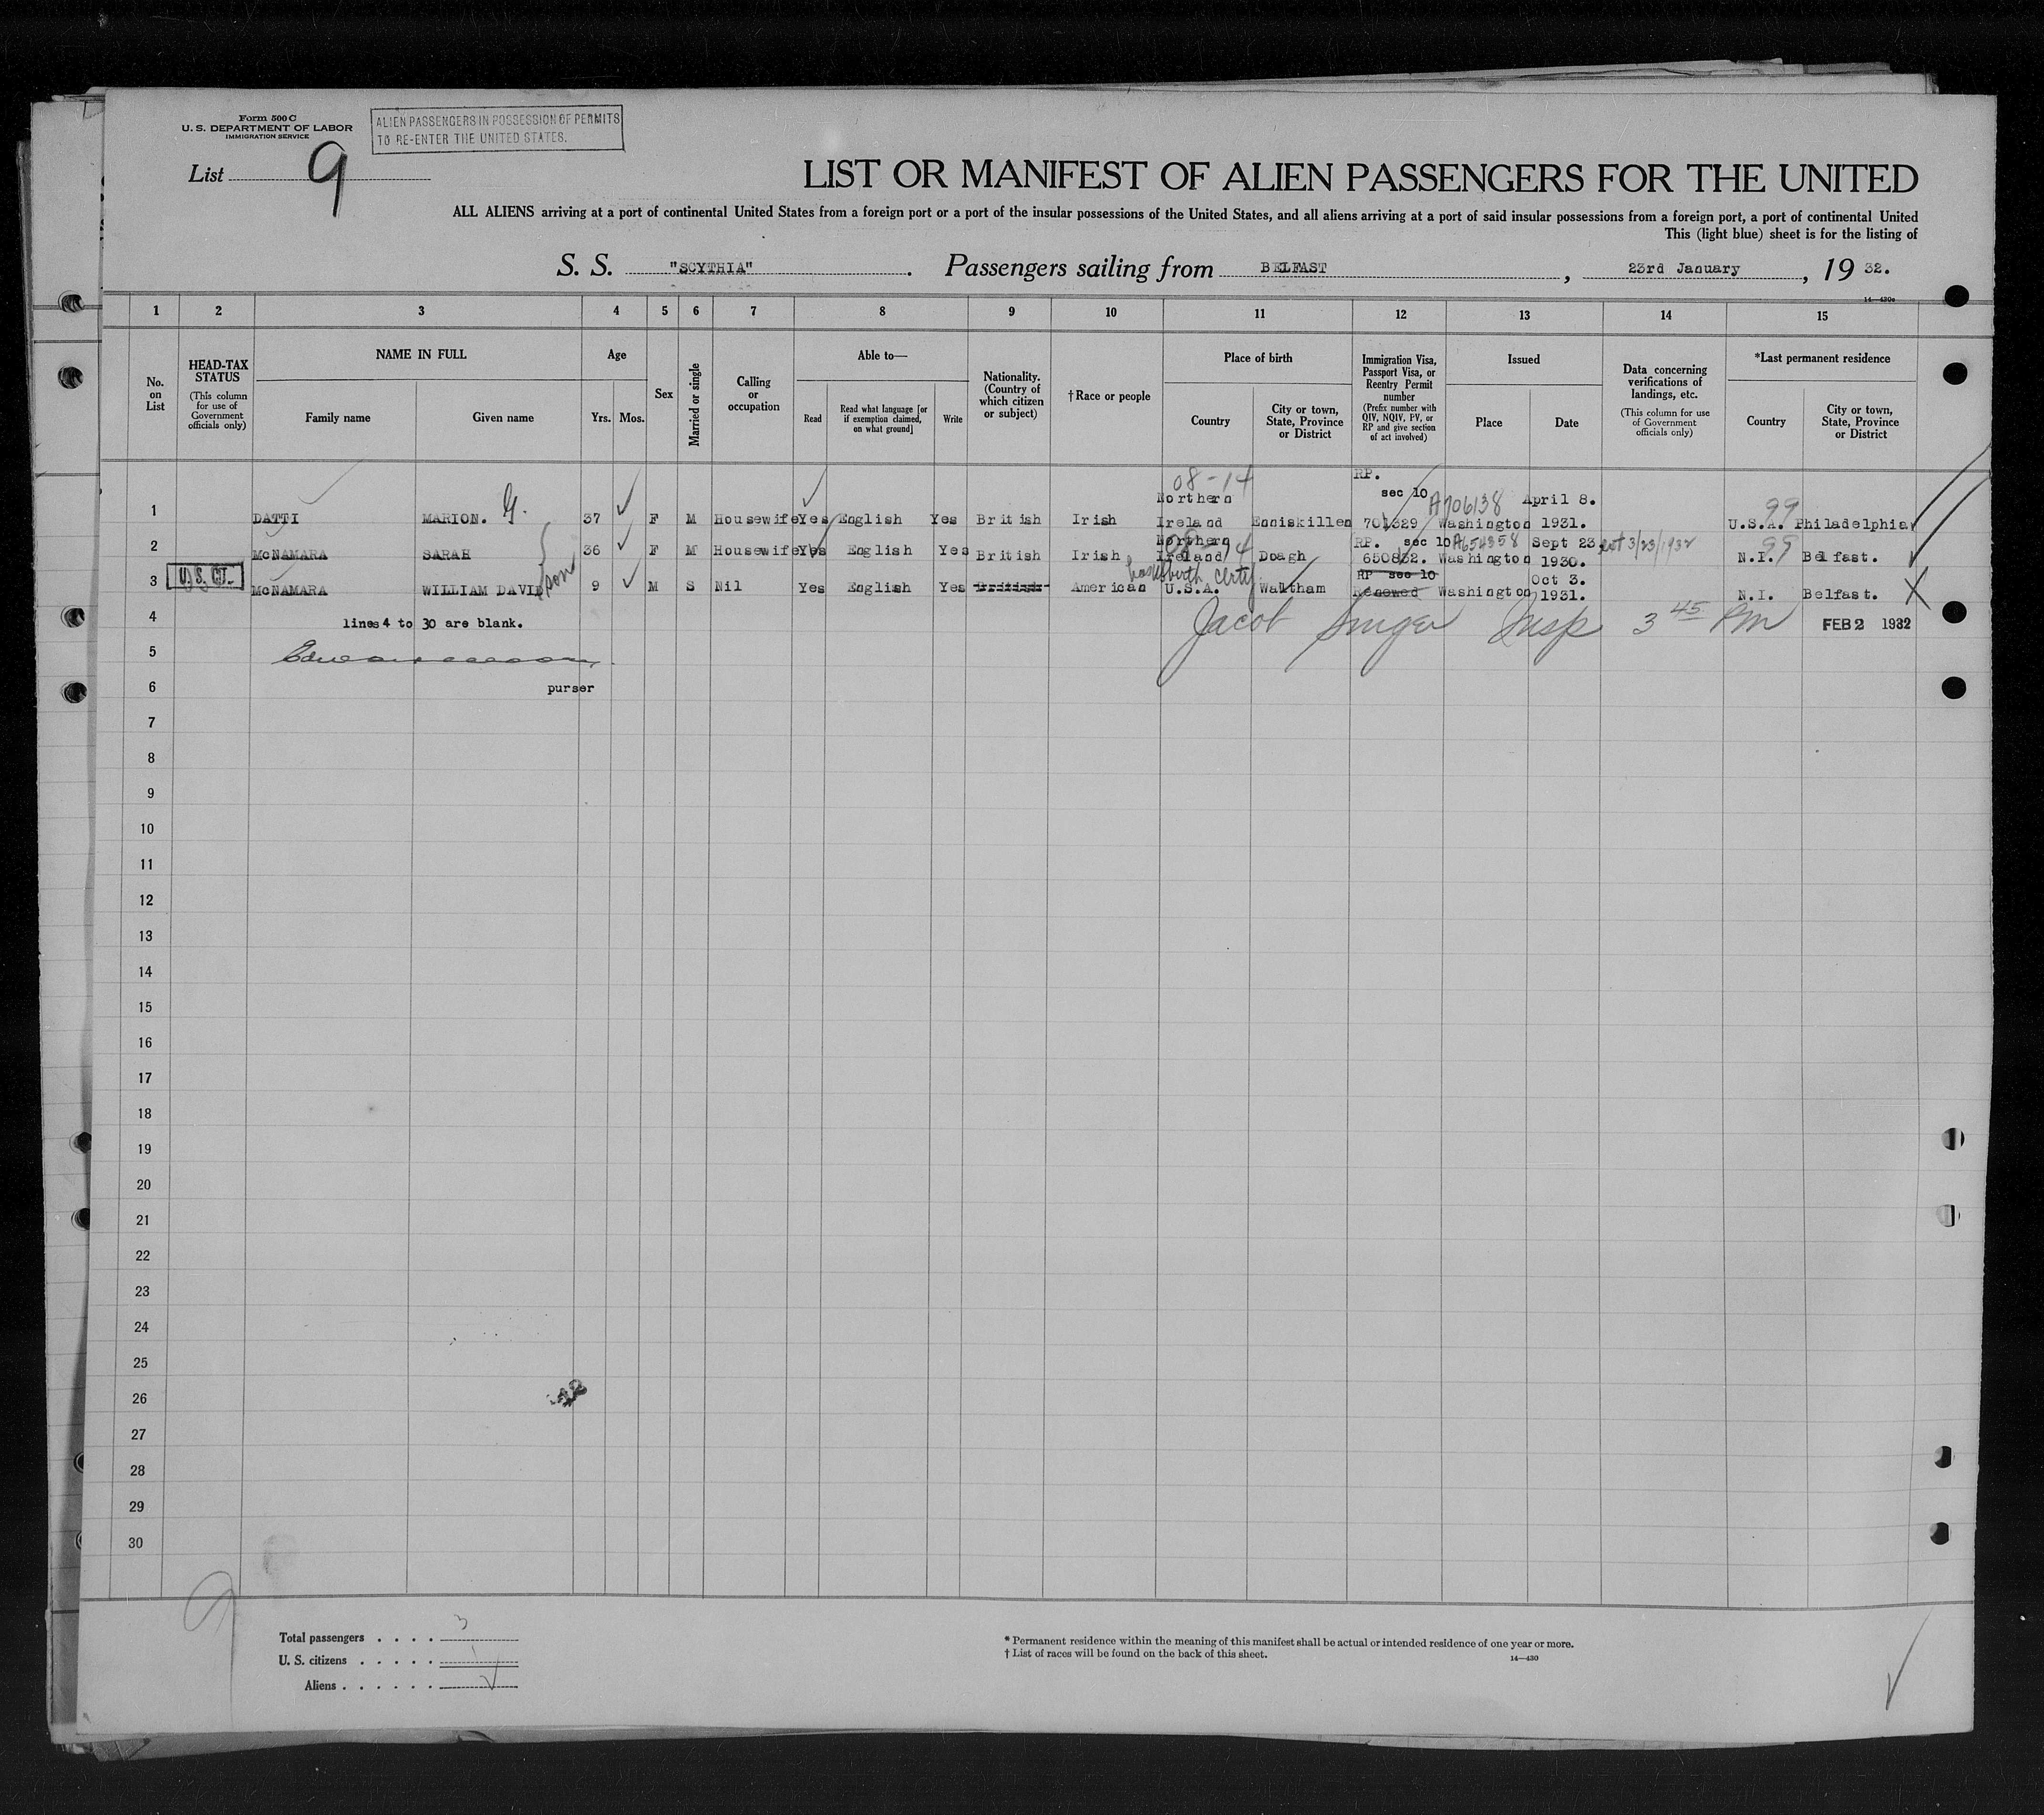 Form 500 C
U. S. DEPARTMENT OF LABOR
IMMIGRATION SERVICE
ALIEN PASSENGERS IN POSSESSION OF PERMITS
TO RE-ENTER THE UNITED STATES.
List 9
LIST OR MANIFEST OF ALIEN PASSENGERS FOR THE UNITED
ALL ALIENS arriving at a port of continental United States from a foreign port or a port of the insular possessions of the United States, and all aliens arriving at a port of said insular possessions from a foreign port, a port of continental United
This (light blue) sheet is for the listing of
S. S. "SCYTHIA". Passengers sailing from BELFAST, 23rd January, 19 32.
14—430e
1 2 3 4 5 6 7 8 9 10 11 12 13 14 15
No. on List
HEAD-TAX STATUS (This column for use of Government officials only)
NAME IN FULL
Family name Given name
Age
Yrs. Mos.
Sex
Married or single
Calling or occupation
Able to—
Read Read what language [or if exemption claimed, on what ground] Write
Nationality. (Country of which citizen or subject)
† Race or people
Place of birth
Country City or town, State, Province or District
Immigration Visa, Passport Visa, or Reentry Permit number (Prefix number with QIV, NQIV, PV, or RP and give section of act involved)
Issued
Place Date
Data concerning verifications of landings, etc. (This column for use of Government officials only)
*Last permanent residence
Country City or town, State, Province or District
08-14 RP.
Northern sec 10 A706138 April 8. 99
1 DATTI MARION. G. 37 F M Housewife Yes English Yes British Irish Ireland Enniskillen 701329 Washington 1931. U.S.A. Philadelphia
08-14 Northern RP. sec 10 A654358 Sept 23, ext 3/23/1932 99
2 McNAMARA SARAH 36 F M Housewife Yes English Yes British Irish Ireland Doagh 650832. Washington 1930. N.I. Belfast.
U.S. CIT. son has birth certif. RP sec 10 Oct 3.
3 McNAMARA WILLIAM DAVID 9 M S Nil Yes English Yes British American U.S.A. Waltham Renewed Washington 1931. N.I. Belfast. X
4 lines 4 to 30 are blank. Jacob Singer Insp 3 45 PM FEB 2 1932
5
6 purser
7
8
9
10
11
12
13
14
15
16
17
18
19
20
21
22
23
24
25
26
27
28
29
30
9
Total passengers . . . . 3
U. S. citizens . . . . . 1
Aliens . . . . . .
* Permanent residence within the meaning of this manifest shall be actual or intended residence of one year or more.
† List of races will be found on the back of this sheet.
14—430